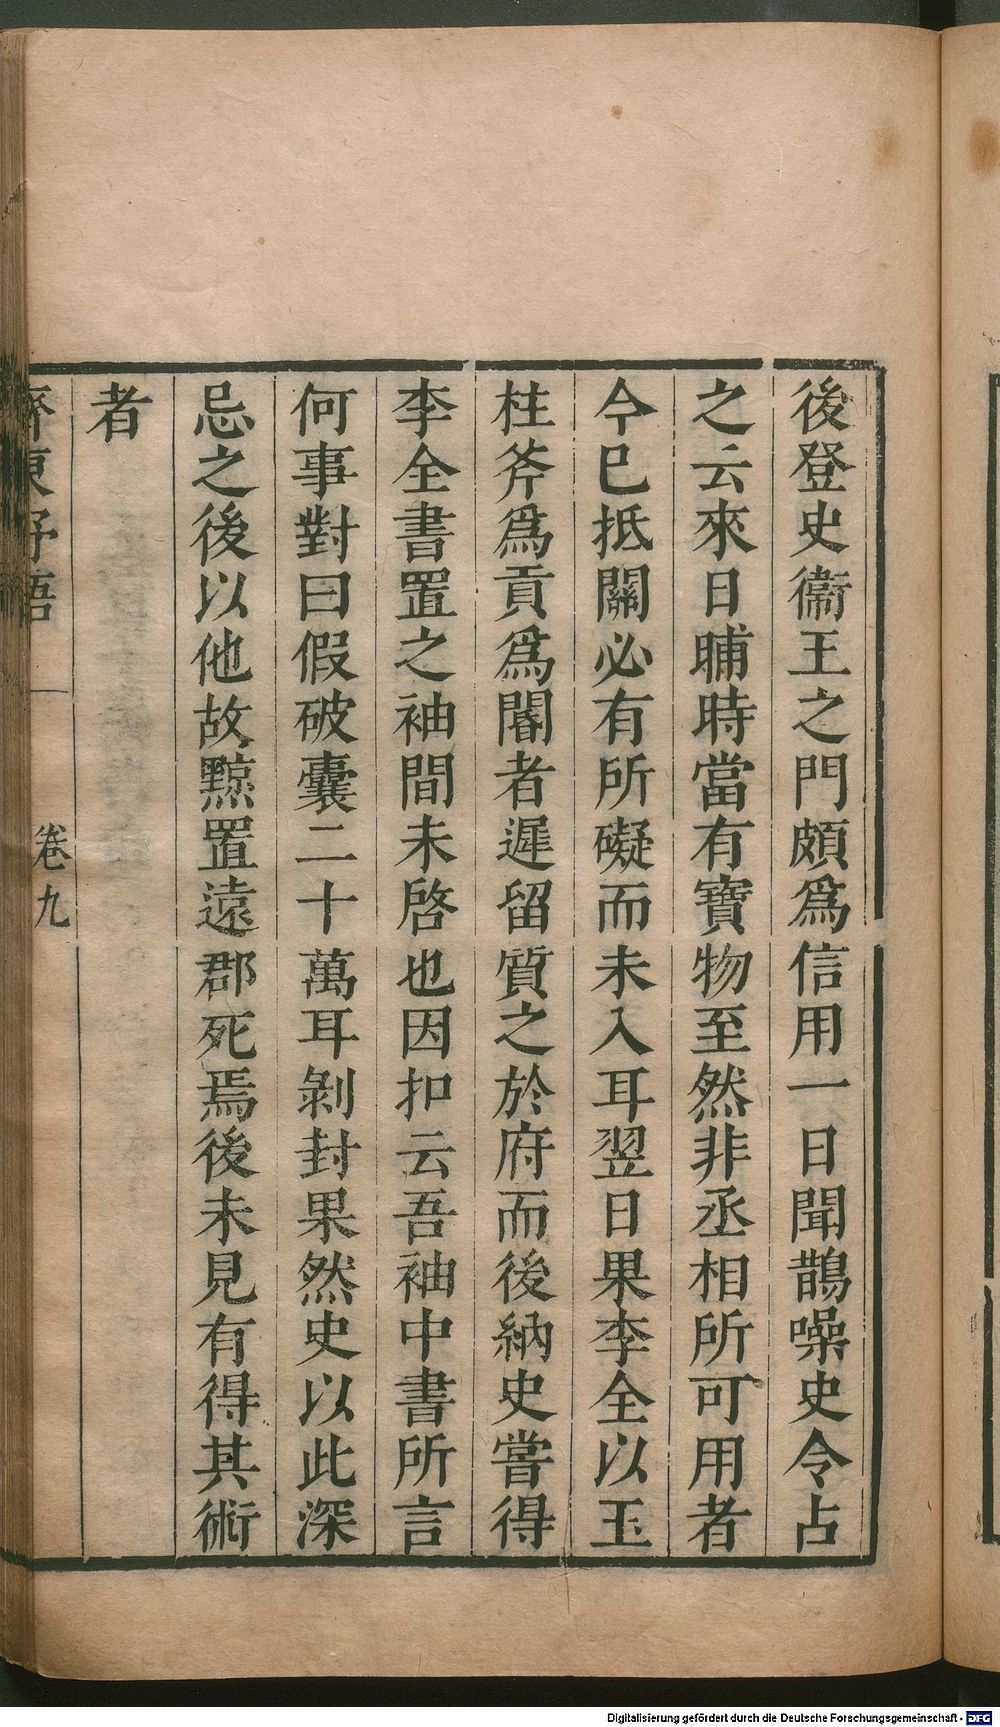 後登史衞王之門頗爲信用一日聞鵲噪史令占
之云來日晡時當有寶物至然非丞相所可用者
今已抵關必有所礙而未入耳翌日果李全以玉
柱斧爲貢爲閽者遲留質之於府而後納史嘗得
李全書置之袖間未啓也因扣云吾袖中書所言
何事對曰假破囊二十萬耳剝封果然史以此深
忌之後以他故黥置遠郡死焉後未見有得其術
者
齊東野語 卷九
Digitalisierung gefördert durch die Deutsche Forschungsgemeinschaft - DFG